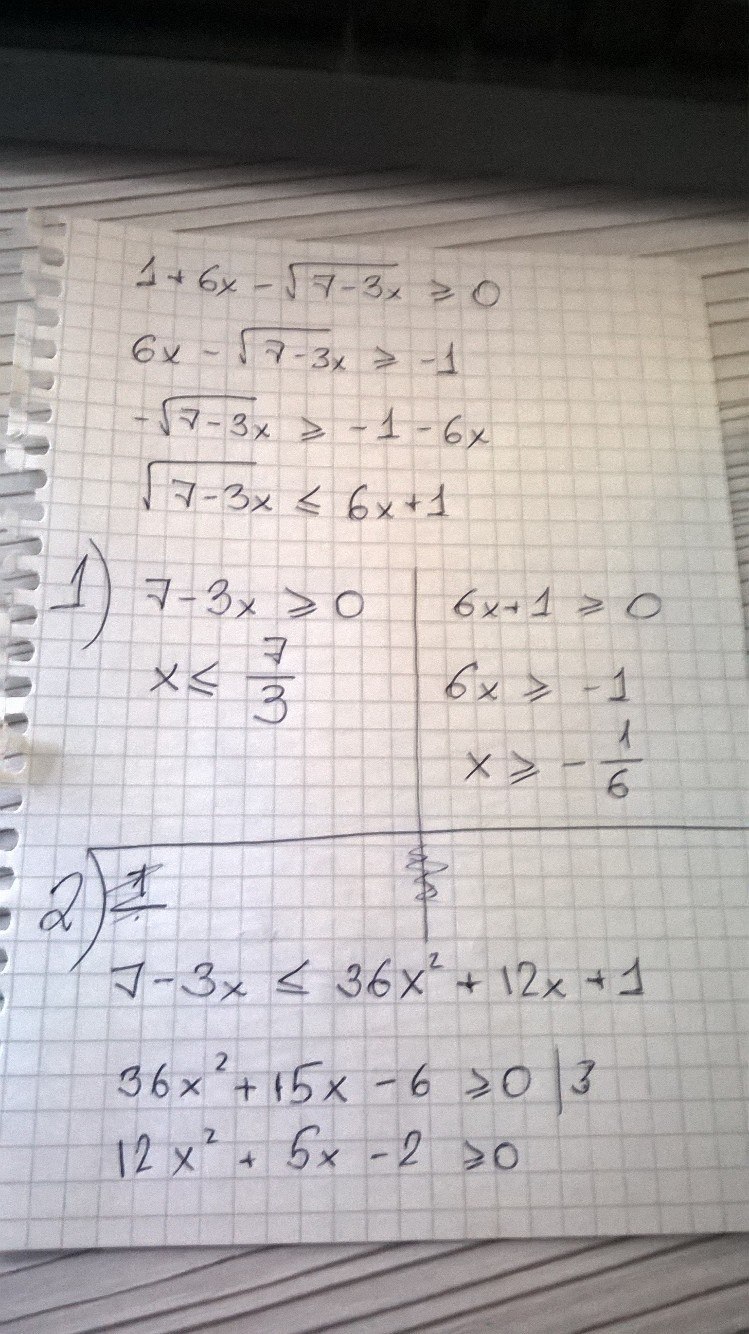 1 + 6x - √(7-3x) ≥ 0
6x - √(7-3x) ≥ -1
-√(7-3x) ≥ -1 - 6x
√(7-3x) ≤ 6x+1
1) 7-3x ≥ 0 | 6x+1 ≥ 0
x ≤ 7/3 | 6x ≥ -1
x ≥ -1/6
2)
7-3x ≤ 36x² + 12x + 1
36x² + 15x - 6 ≥ 0 | 3
12x² + 5x - 2 ≥ 0